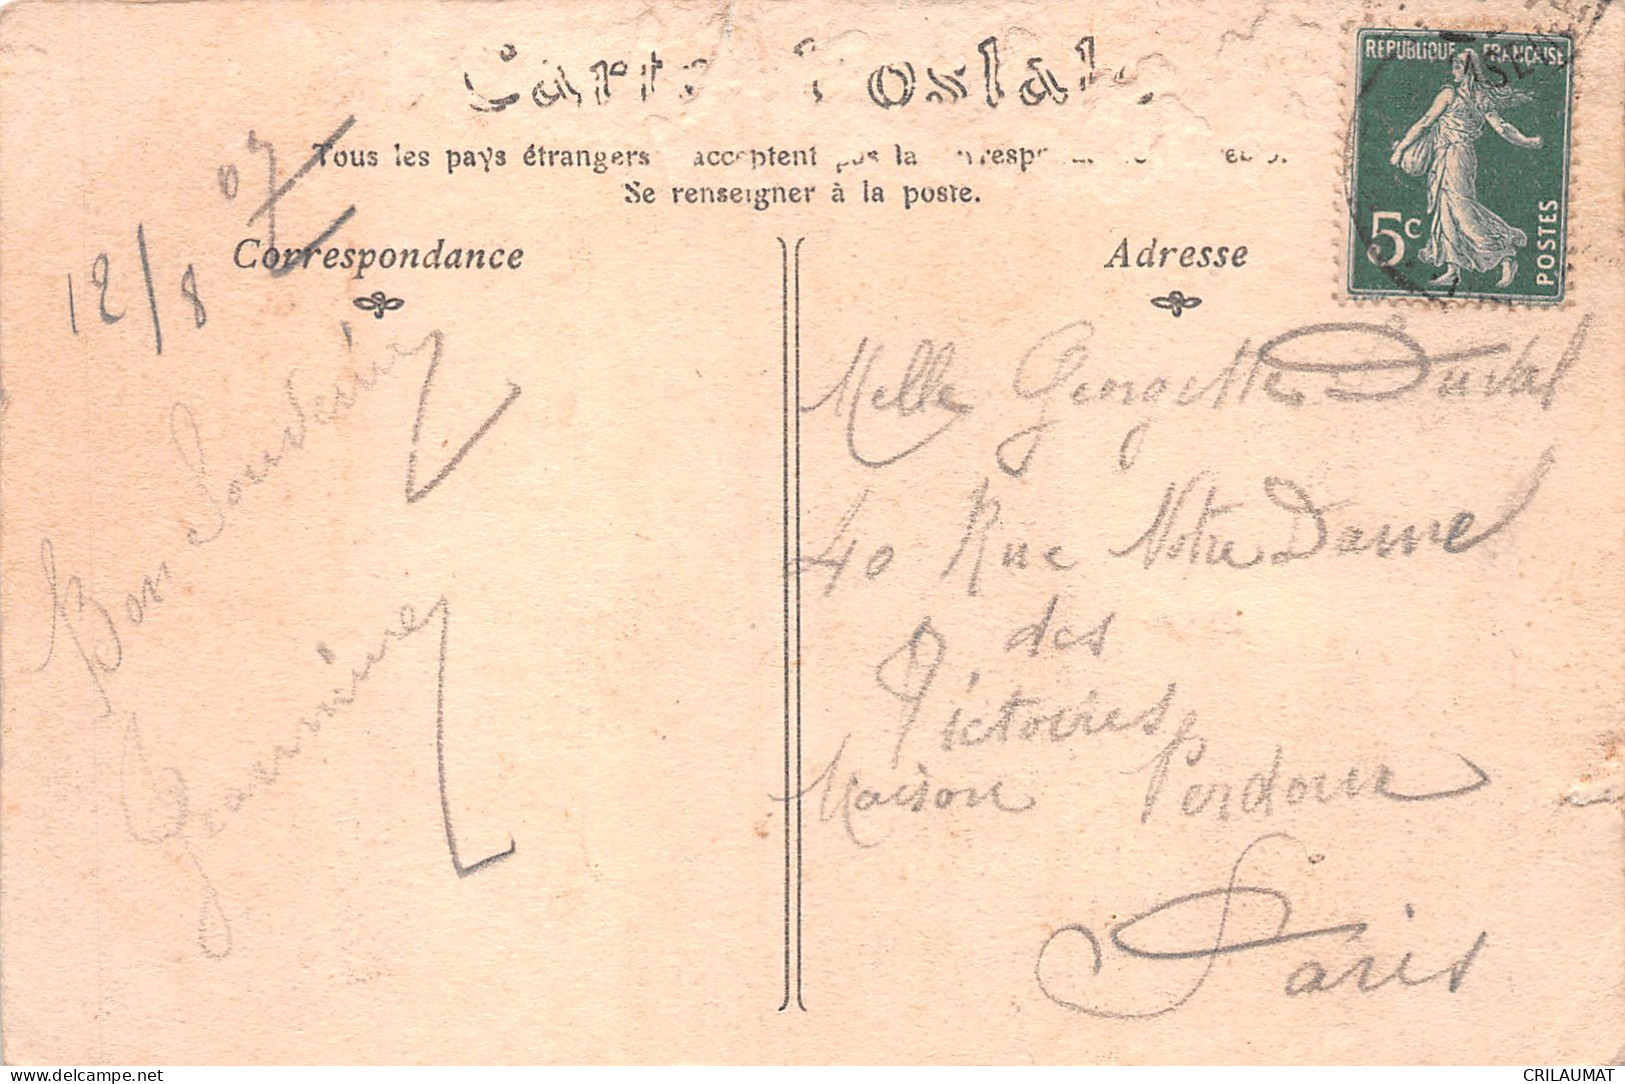 Carte Postale
Tous les pays étrangers acceptent pas la
Se renseigner à la poste.
Correspondance
Adresse
RÉPUBLIQUE FRANÇAISE
5c
POSTES
12/8 07
Bon Souvenir
Melle Georgette Duval
40 Rue Notre Dame
des
Victoires
Maison
Paris
CRILAUMAT